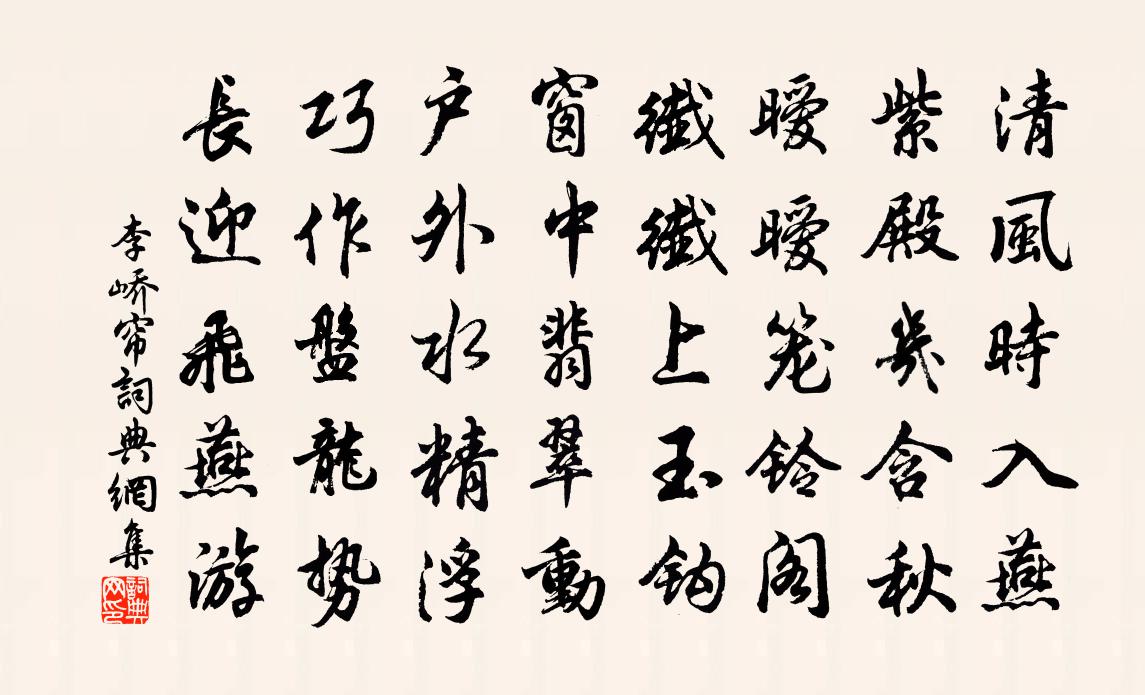 清風時入燕
紫殿幾含秋
曖曖笼鈴阁
纖纖上玉鈎
窗中翡翠動
户外水精浮
巧作盤龍势
長迎飛燕游
李嶠帘詞典網集
詞典網印